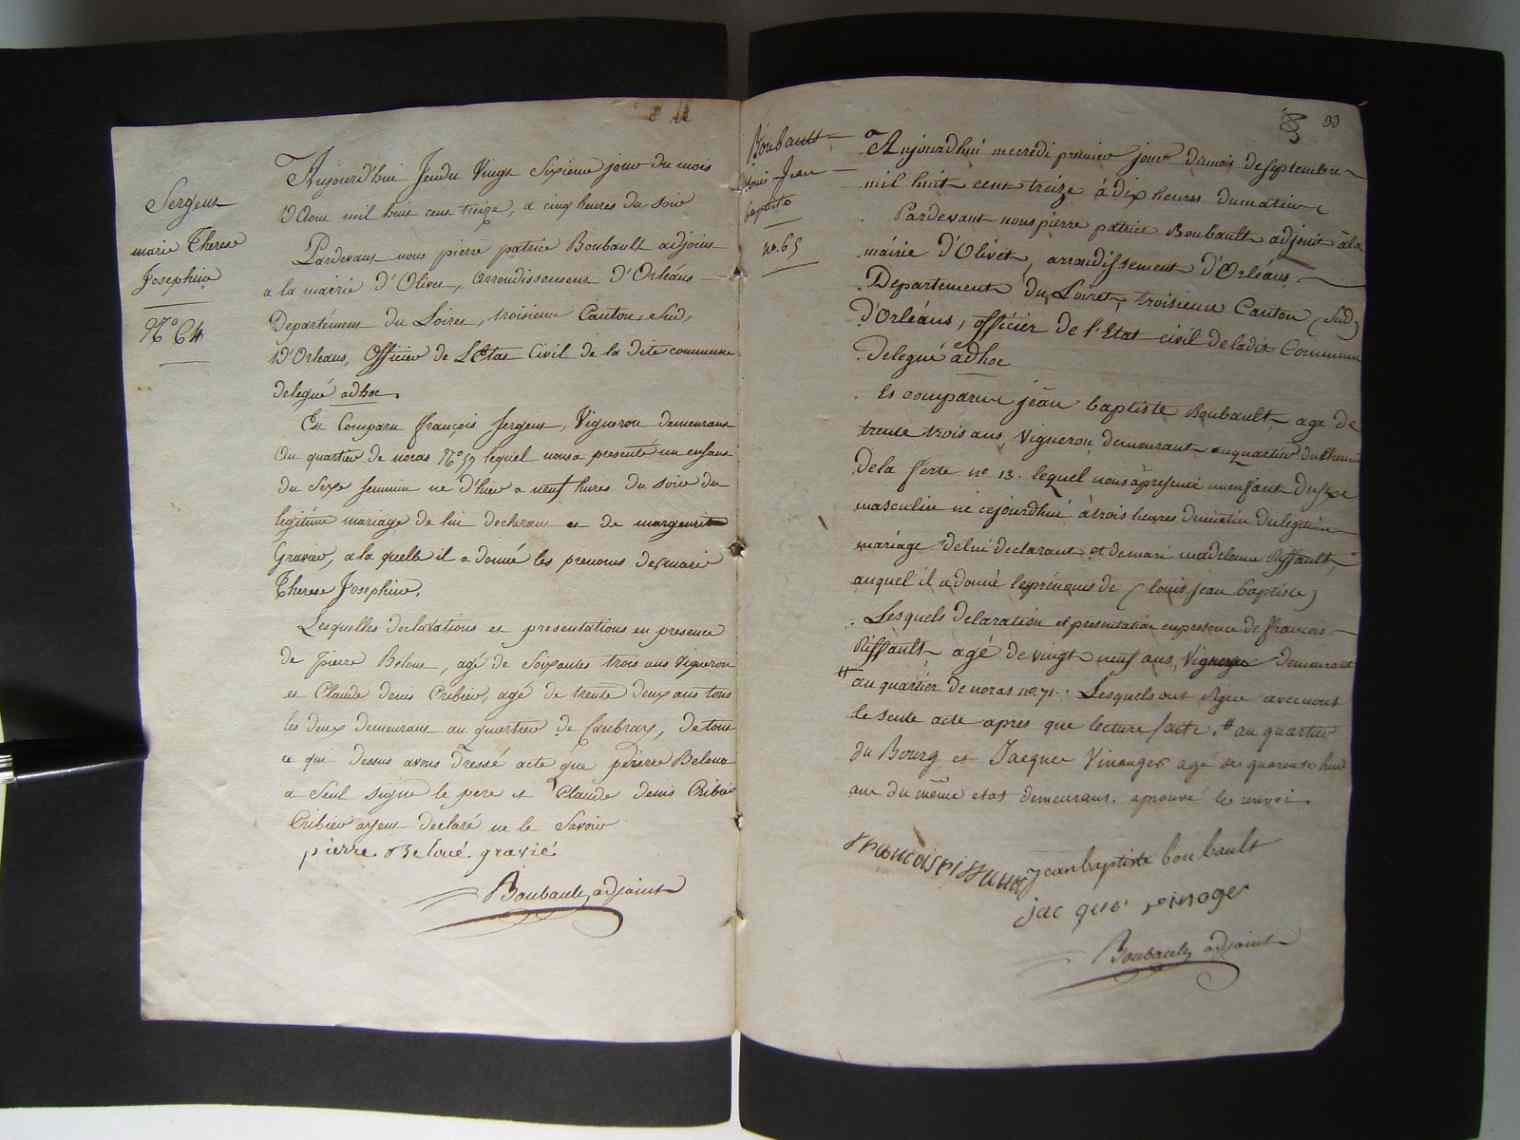 Sergent
marie Therese
Josephine
N.° 64
Aujourd'hui Jeudu Vingt Sixieme jour du mois
D'Aout mil huit cent treize, a cinq heures du soir
Pardevant nous pierre patrice Boubault adjoint
a la mairie d'Olivet, arrondissement d'Orléans
Departement du Loiret, troisieme Canton, Sud,
d'Orleans, Officier de L'Etat Civil de la dite commune
delegué adhoc.
Est Comparu françois Sergent, Vigneron demeurant
au quartier de noras N.° 57 lequel nous a presenté un enfant
du Sexe feminin né d'hier a neuf hures du soir du
legitime mariage de lui declarant et de marguerite
Gravier, a la quelle il a donné les prenoms de marie
Therese Josephine.
Lesquelles declarations et presentations en presence
de pierre Beloué, agé de Soixante trois ans Vigneron
et Claude denis Cribier, agé de trente deux ans tous
les deux demeurant au quartier de Caubray, de tout
ce qui dessus avons dressé acte que pierre Beloué
a Seul signé le pere et Claude denis Cribier
Cribier ayent declaré ne le Savoir
pierre Beloué gravié
Boubault adjoint
33
Boubault
louis Jean
baptiste
no. 65
Aujourdhui mecredi premier jour dumois de septembre
mil huit cent treize à dix heures dumatin
Pardevant nous pierre patrice Boubault adjoint àla
mairie d'Olivet, arrondissement d'Orléans,
Departement du Loiret, troisieme Canton (Sud)
D'Orléans, officier de l'Etat civil de ladite Commune
Delegué adhoc
Es comparu jean baptiste Boubault, agé de
trente trois ans, Vigneron demeurant auquartier
Dela ferte no 13. lequel nous à presenté un enfant Dusexe
masculin né cejourdhui à trois heures Dumatin Dulegitime
mariage Delui declarant et demari madelaine Riffault
auquel il a donné lesprénoms de (louis jean baptiste)
Lesquels delaration et presentation enpresence de françois
Riffault agé de vingt neuf ans, Vigneron Demeurant
# au quartier de noras no. 71. Lesquels ont signé avec nous
le sente acte apres que lecture faite. # au quartier
du Bourg et Jacque Vinauger agé de quarente huit
ans du même etat demeurant. aprouvé le renvoi.
francois riffault Jean baptiste boubault
jacque vinoger
Boubault adjoint